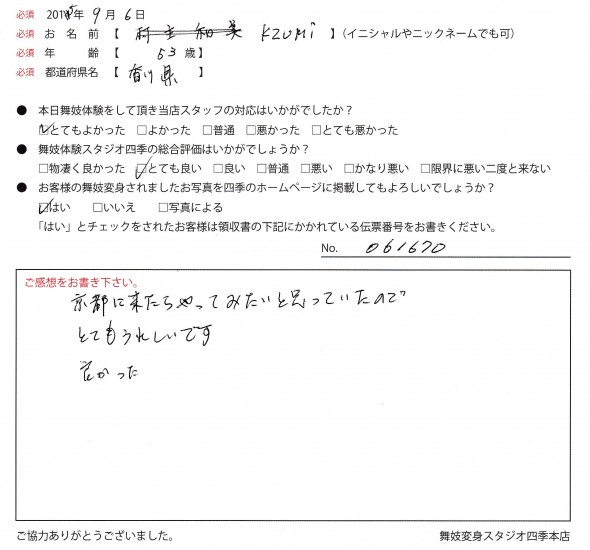 必須 2015年 9月 6日
必須 お 名 前 【 KZUMi 】(イニシャルやニックネームでも可)
必須 年 齢 【 53 歳】
必須 都道府県名 【 香川県 】
● 本日舞妓体験をして頂き当店スタッフの対応はいかがでしたか?
☑とてもよかった □よかった □普通 □悪かった □とても悪かった
● 舞妓体験スタジオ四季の総合評価はいかがでしょうか?
□物凄く良かった ☑とても良い □良い □普通 □悪い □かなり悪い □限界に悪い二度と来ない
● お客様の舞妓変身されましたお写真を四季のホームページに掲載してもよろしいでしょうか?
☑はい □いいえ □写真による
「はい」とチェックをされたお客様は領収書の下記にかかれている伝票番号をお書きください。
No. 061670
ご感想をお書き下さい。
京都に来たらやってみたいと思っていたので
とてもうれしいです
良かった
ご協力ありがとうございました。 舞妓変身スタジオ四季本店